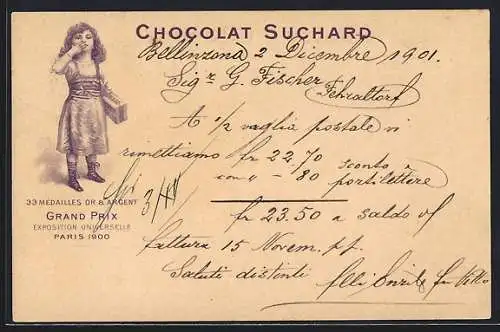 CHOCOLAT SUCHARD
Bellinzona 2 Dicembre 1901.
Sigr G. Fischer
Fehraltorf
A 1/2 vaglia postale vi
rimettiamo fr 22.70
con " - 80 sconto e
portilettere
fr 23.50 a saldo vs/
fattura 15 Novem. pp.
Saluti distinti
flli
33 MEDAILLES OR & ARGENT
GRAND PRIX
EXPOSITION UNIVERSELLE
PARIS 1900